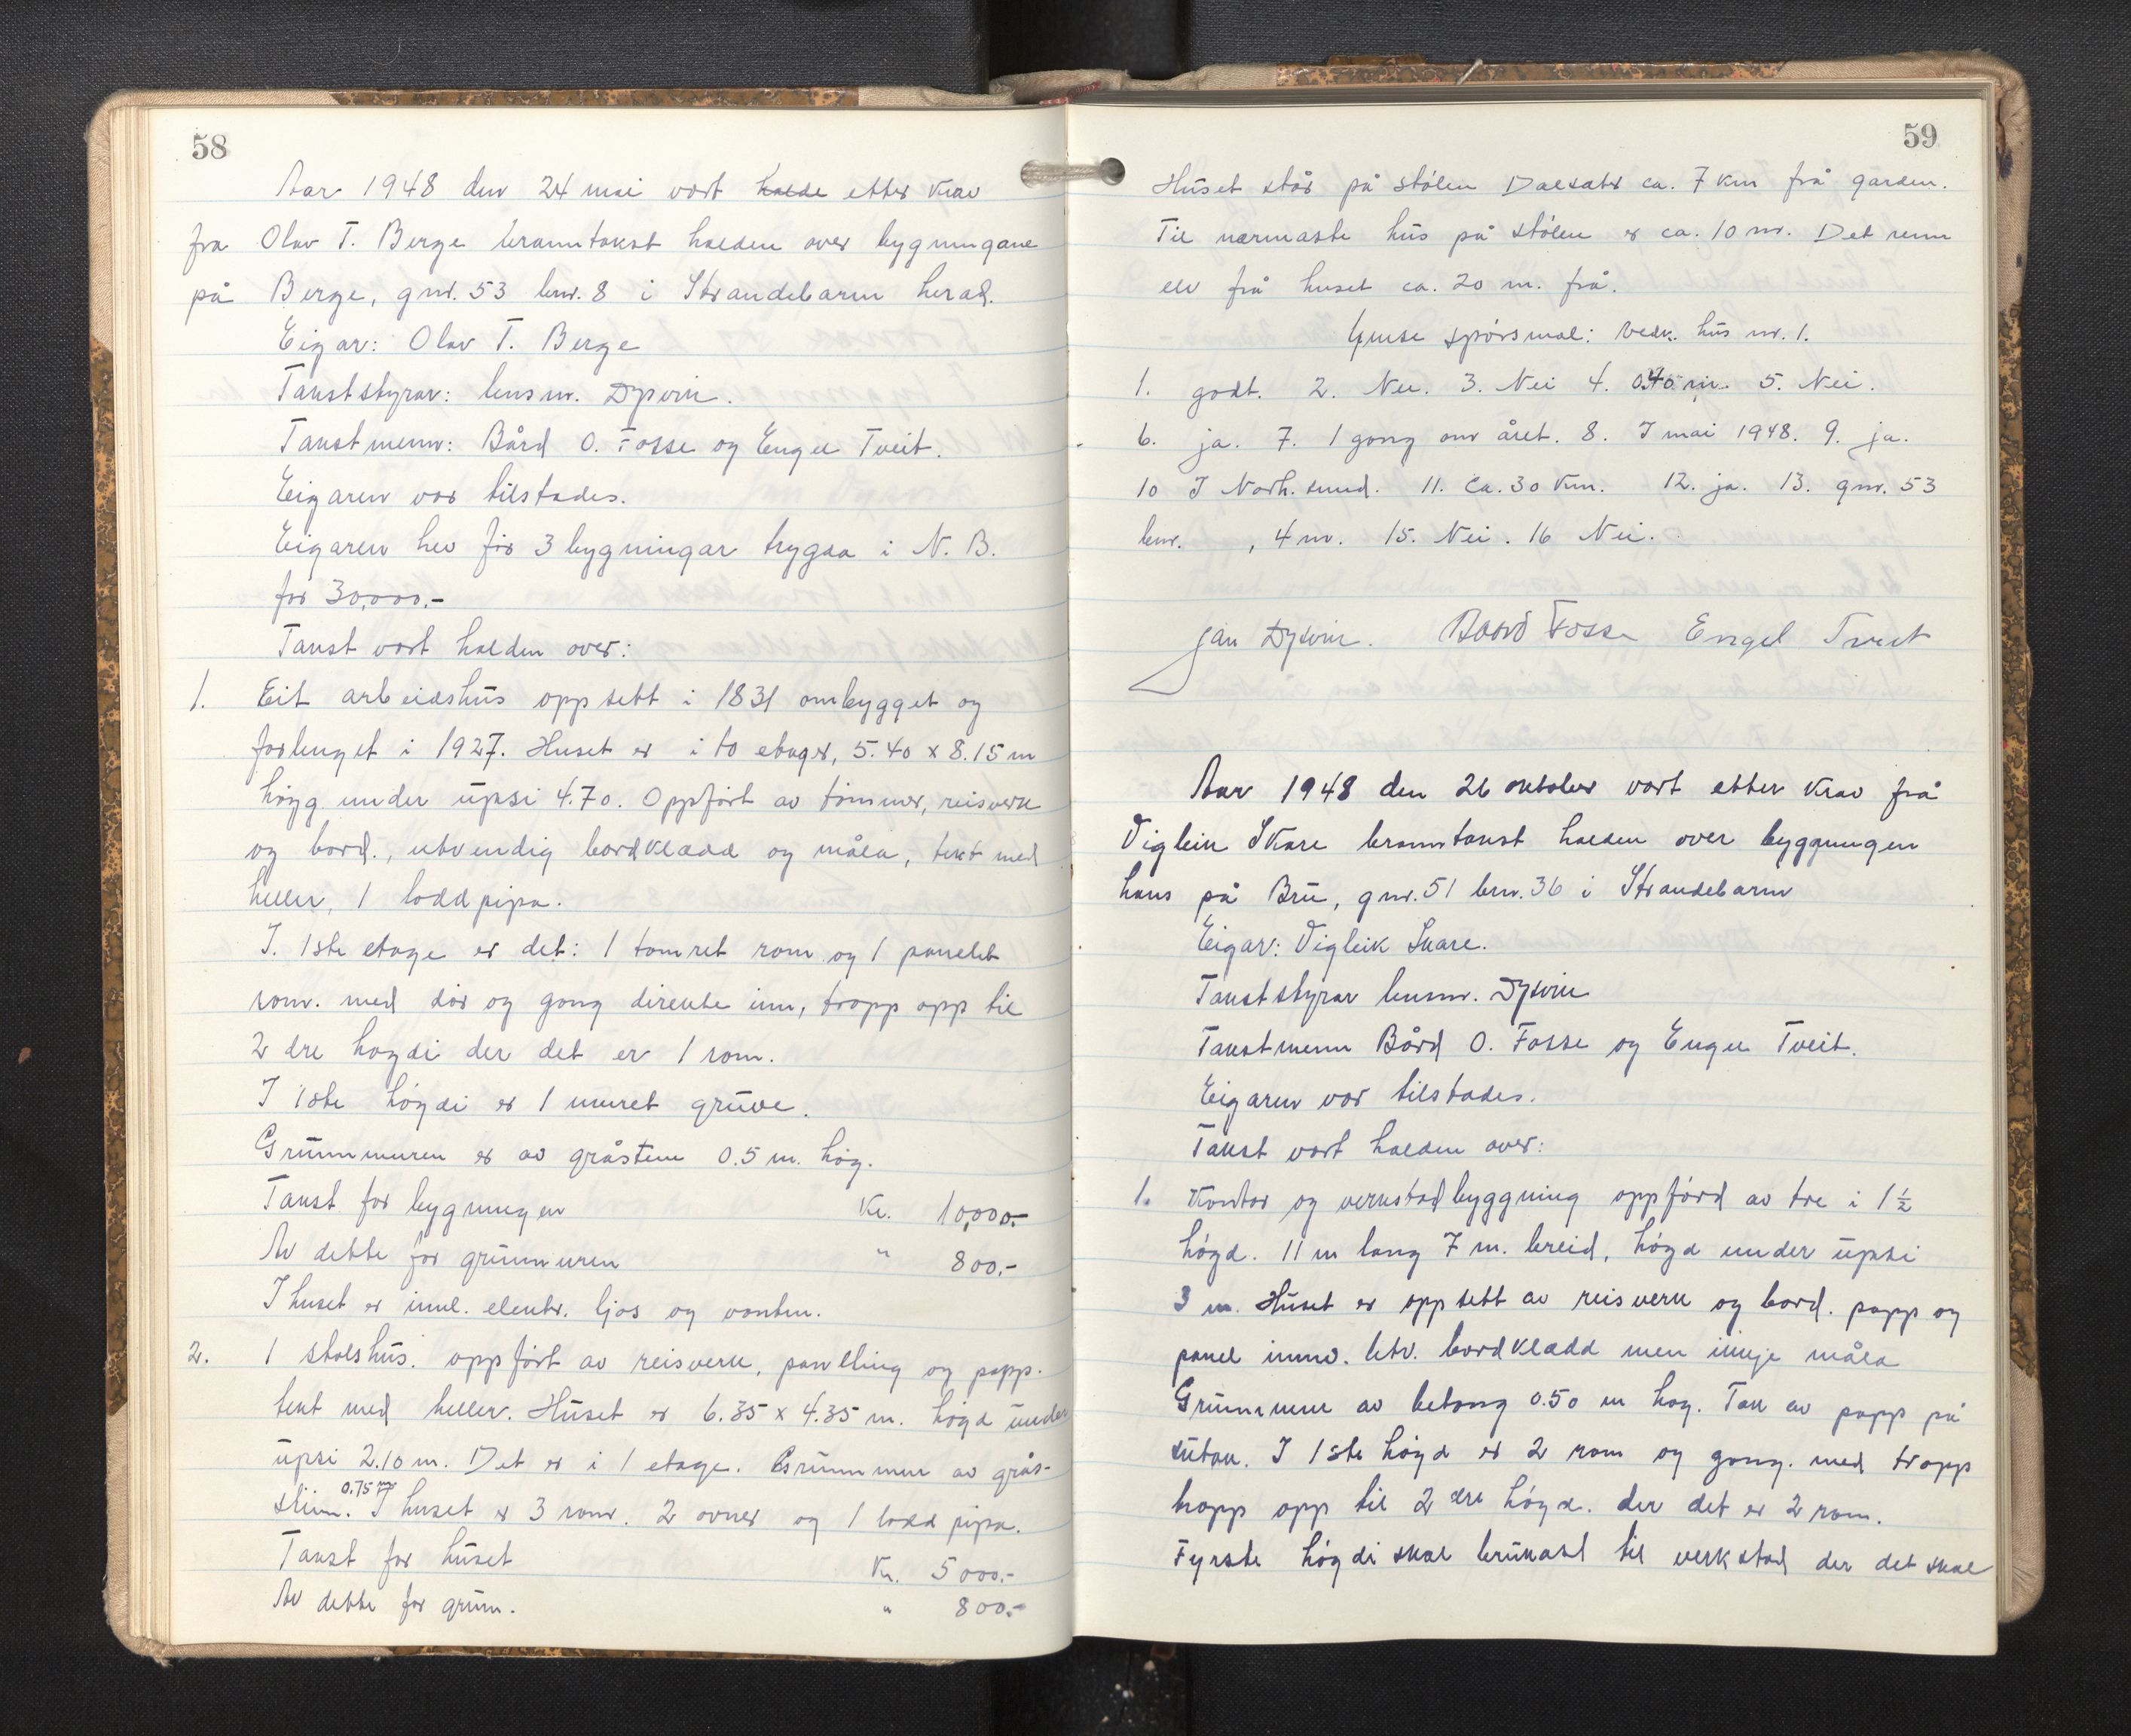 58
Aar 1948 den 24 mai vart halde etter krav
fra Olav T. Berge branntakst halden over bygningane
på Berge, gnr. 53 bnr. 8 i Strandebarm herad.
Eigar: Olav T. Berge
Takststyrar: lensm. Dysvik.
Takstmenn: Bård O. Fosse og Engel Tveit.
Eigaren var tilstades.
Eigaren hev før 3 bygningar trygda i N. B.
for 30,000.-
Takst vart halden over:
1. Eit arbeidshus oppsett i 1831 ombygget og
forlenget i 1927. Huset er i to etager, 5.40 x 8.15 m
høyg under upsi 4.70. Oppført av tømmer, reisverk
og bord., utvendig bordklædd og måla, tekt med
heller, 1 loddpipa.
I. 1ste etage er det: 1 tømret rom og 1 panelet
rom. med dør og gong direkte inn, tropp opp til
2 dre høgdi der det er 1 rom.
I 1ste høgdi er 1 muret gruve.
Grunnmuren er av gråstein 0.5 m. høg.
Takst for bygningen Kr. 10,000.-
Av dette for grunnmuren " 800.-
I huset er innl. elektr. ljos og vatn.
2. 1 stølshus. oppført av reisverk, panelling og papp.
tekt med heller. Huset er 6.35 x 4.35 m. høgd under
upsi 2.10 m. Det er i 1 etage. Grunnmur av grås-
0.75 m
stein. I huset er 3 rom. 2 ovner og 1 lodd pipa.
Takst for huset Kr. 5000.-
Av dette for grunn. " 800.-
59
Huset står på stølen Dalsatr ca. 7 km frå garden.
Til nærmaste hus på stølen er ca. 10 m. Det renn
elv frå huset ca. 20 m. frå.
Ymse spørsmål: vedk. hus nr. 1.
1. godt. 2. Nei. 3. Nei 4. 0.40 m. 5. Nei.
6. ja. 7. 1 gong om året. 8. I mai 1948. 9. ja.
10 I Norh. sund. 11. Ca. 30 km. 12. ja. 13. gnr. 53
bnr. , 4 m. 15. Nei. 16 Nei.
Jan Dysvik. Baard Fosse Engel Tveit
Aar 1948 den 26 oktober vart etter krav frå
Vigleik Skare branntakst halden over byggningen
hans på Bru, gnr. 51 bnr. 36 i Strandebarm
Eigar: Vigleik Skare.
Takststyrar lensm. Dysvik
Takstmenn Bård O. Fosse og Engel Tveit.
Eigaren var tilstades.
Takst vart halden over:
1. Kontor og verkstadbyggning oppførd av tre i 1 ½
høgd. 11 m lang 7 m. breid, høgd under upsi
3 m. Huset er oppsett av reisverk og bord. papp og
panel innv. Utv. bordklædd men ikkje måla
Grunnmur av betong 0.50 m høg. Tak av papp på
sutak. I 1ste høgd er 2 rom og gong. med tropp
tropp opp til 2 dre høgd. der det er 2 rom.
Fyrste høgdi skal brukast til verkstad der det skal